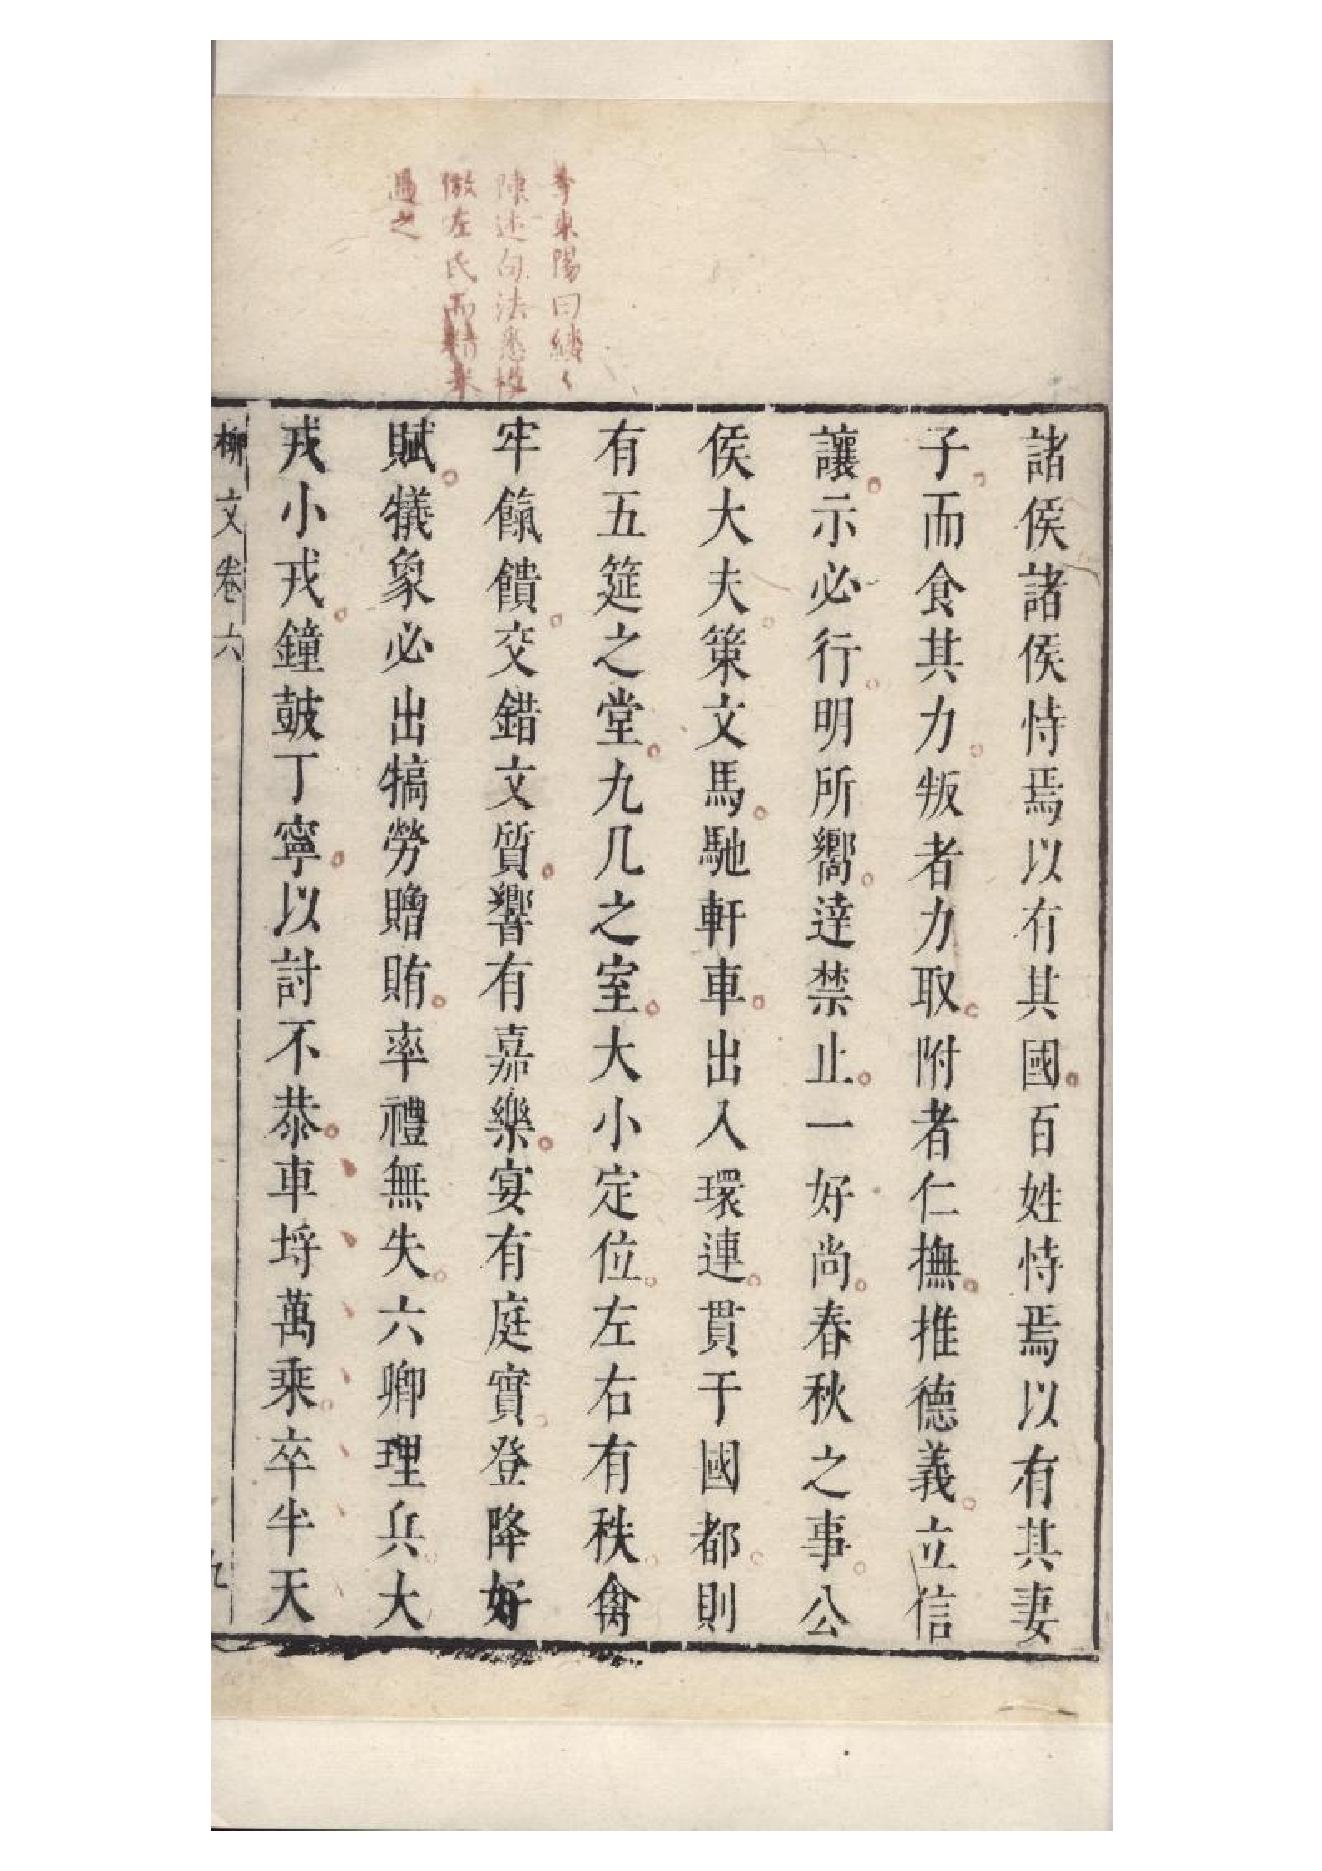 李東陽曰縷々
陳述句法悉模
倣左氏而精采
過之
諸侯諸侯恃焉以有其國百姓恃焉以有其妻
子而食其力叛者力取附者仁撫推德義立信
讓示必行明所嚮達禁止一好尚春秋之事公
侯大夫策文馬馳軒車出入環連貫于國都則
有五筵之堂九几之室大小定位左右有秩禽
牢餼饋交錯文質響有嘉樂宴有庭實登降好
賦犧象必出犒勞贈賄率禮無失六卿理兵大
戎小戎鐘鼓丁寧以討不恭車埒萬乘卒半天
柳文卷六
九